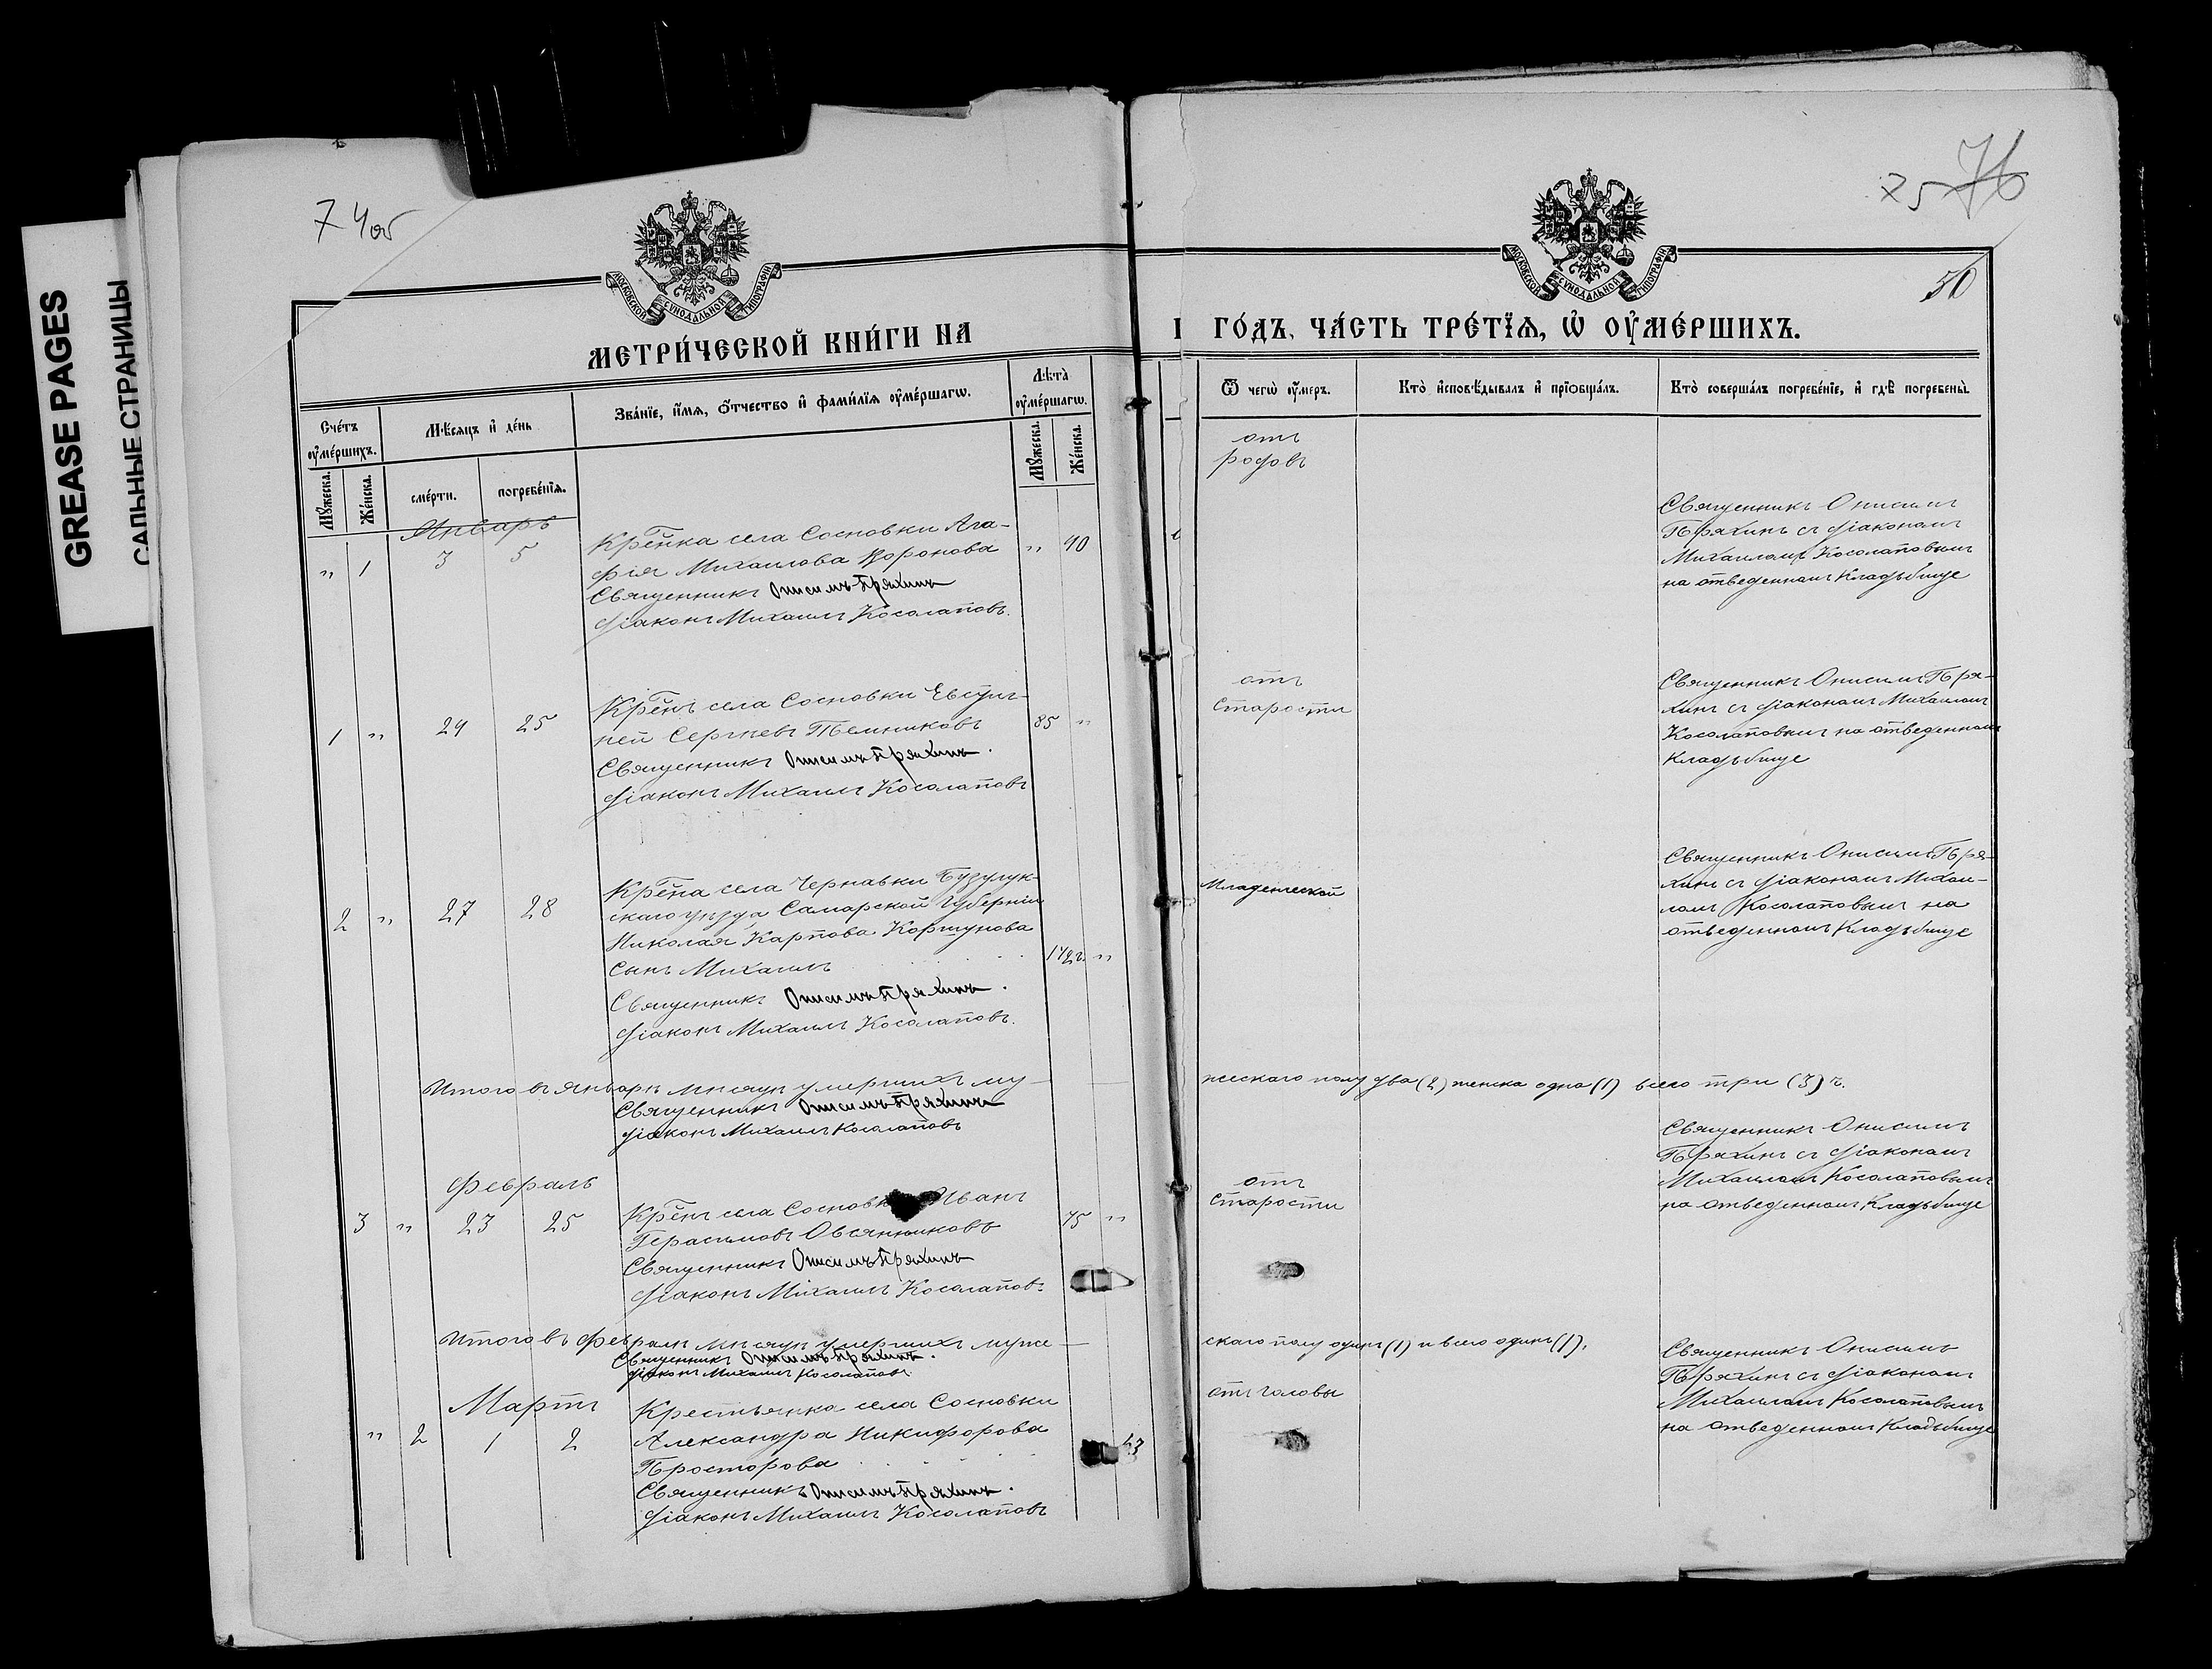 GREASE PAGES
САЛЬНЫЕ СТРАНИЦЫ
74об
МОСКОВСКОЙ СѴНОДАЛЬНОЙ ТИПОГРАФІИ
МЕТРИ́ЧЕСКОЙ КНИ́ГИ НА
Сче́тъ ᲂу҆ме́ршихъ.
Мѣ́сяцъ и҆ де́нь
Зва́нїе, и҆́мѧ, ѻ҆́тчество и҆ фами́лїѧ ᲂу҆ме́ршагѡ.
Лѣта̀ ᲂу҆ме́ршагѡ.
Мꙋ́жеска.
Же́нска.
сме́рти.
погребе́нїѧ.
Мꙋ́жеска.
Же́нска.
Январь
„ 1 3 5 Крестьянка села Сосновки Ага-
фія Михаилова Воронова „ 40
Священникъ Онисимъ Пряхинъ
Діаконъ Михаилъ Косолаповъ.
1 „ 24 25 Кр̃нъ села Сосновки Евсиг-
ней Сергѣевъ Темниковъ 85 „
Священникъ Онисимъ Пряхинъ.
Діаконъ Михаилъ Косолаповъ
2 „ 27 28 Кр̃на села Чернавки Бузулук-
скаго уѣзда Самарской губерніи
Николая Карпова Коршунова
сынъ Михаилъ
Священникъ Онисимъ Пряхинъ.
Діаконъ Михаилъ Косолаповъ.
Итого въ январѣ мѣсяцѣ умершихъ му-
Священникъ Онисимъ Пряхинъ
Діаконъ Михаилъ Косолаповъ
Февраль
3 „ 23 25 Кр̃нъ села Сосновки Иванъ
Герасимовъ Овсянниковъ 75 „
Священникъ Онисимъ Пряхинъ
Діаконъ Михаилъ Косолаповъ
Итого въ февралѣ мѣсяцѣ умершихъ муже-
Священникъ Онисимъ Пряхинъ.
Діаконъ Михаилъ Косолаповъ
Мартъ
Крестьянка села Сосновки
„ 2 1 2 Александра Никифорова
Просторова
Священникъ Онисимъ Пряхинъ.
Діаконъ Михаилъ Косолаповъ
75 76
МОСКОВСКОЙ СѴНОДАЛЬНОЙ ТИПОГРАФІИ
50
ГО́ДЪ, ЧА́СТЬ ТРЕ́ТЇѦ, Ѡ҆ ОУ҆МЕ́РШИХЪ.
Ѿ чегѡ̀ ᲂу҆́меръ.
Кто̀ и҆сповѣ́дывалъ и҆ прїѻбща́лъ.
Кто̀ соверша́лъ погребе́нїе, и҆ гдѣ̀ погребены̀.
отъ
родовъ
Священникъ Онисимъ
Пряхинъ съ Діакономъ
Михаиломъ Косолаповымъ
на отведенномъ Кладбище
отъ
старости
Священникъ Онисимъ Пря-
хинъ съ Діакономъ Михаиломъ
Косолаповымъ на отведенномъ
Кладбище
Младенческой
Священникъ Онисимъ Пря-
хинъ съ Діакономъ Михаи-
ломъ Косолаповымъ на
отведенномъ Кладбище
жескаго полу два (2) женска одна (1) всего три (3) ч.
Священникъ Онисимъ
Пряхинъ съ Діакономъ
Михаиломъ Косолаповымъ
на отведенномъ Кладбище
отъ
старости
скаго полу одинъ (1) и всего одинъ (1).
отъ головы
Священникъ Онисимъ
Пряхинъ съ Діакономъ
Михаиломъ Косолаповымъ
на отведенномъ Кладбище